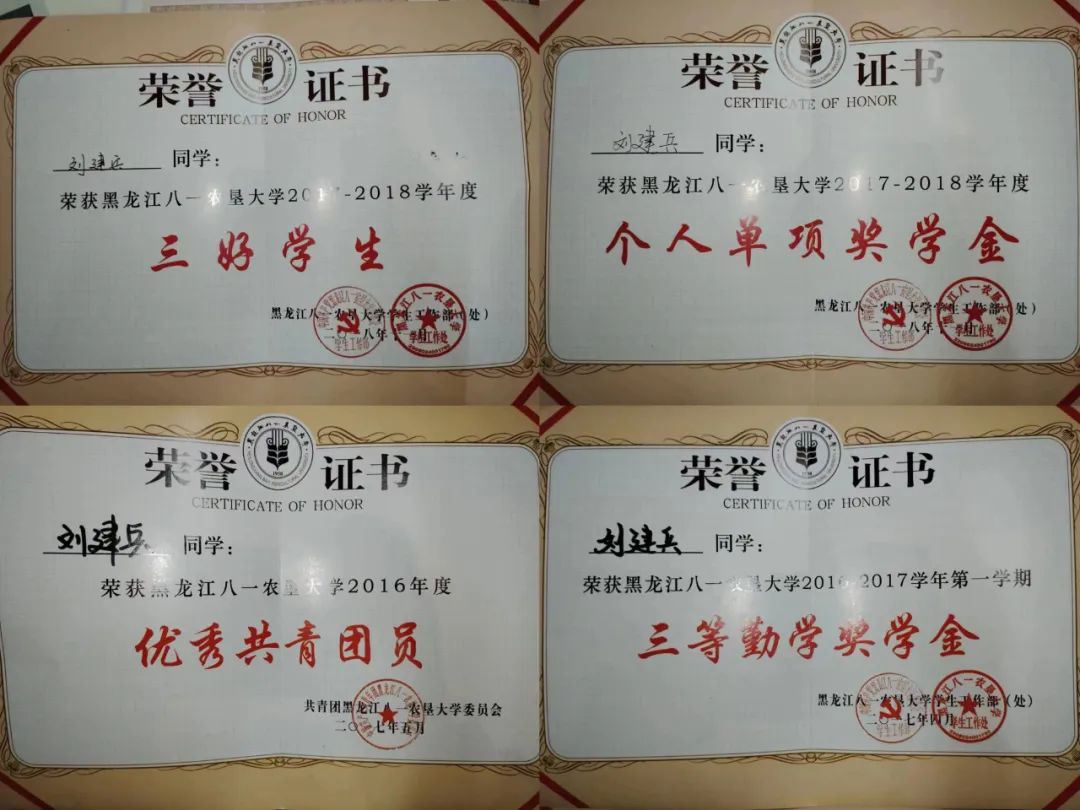 荣誉证书
CERTIFICATE OF HONOR
刘建兵 同学:
荣获黑龙江八一农垦大学2017-2018学年度
三好学生
黑龙江八一农垦大学学生工作部(处)
二〇一八年 月
荣誉证书
CERTIFICATE OF HONOR
刘建兵 同学:
荣获黑龙江八一农垦大学2017-2018学年度
个人单项奖学金
黑龙江八一农垦大学学生工作部(处)
二〇一八年 月
荣誉证书
CERTIFICATE OF HONOR
刘建兵 同学:
荣获黑龙江八一农垦大学2016年度
优秀共青团员
共青团黑龙江八一农垦大学委员会
二〇一七年五月
荣誉证书
CERTIFICATE OF HONOR
刘建兵 同学:
荣获黑龙江八一农垦大学2016-2017学年第一学期
三等勤学奖学金
黑龙江八一农垦大学学生工作部(处)
二〇一七年四月